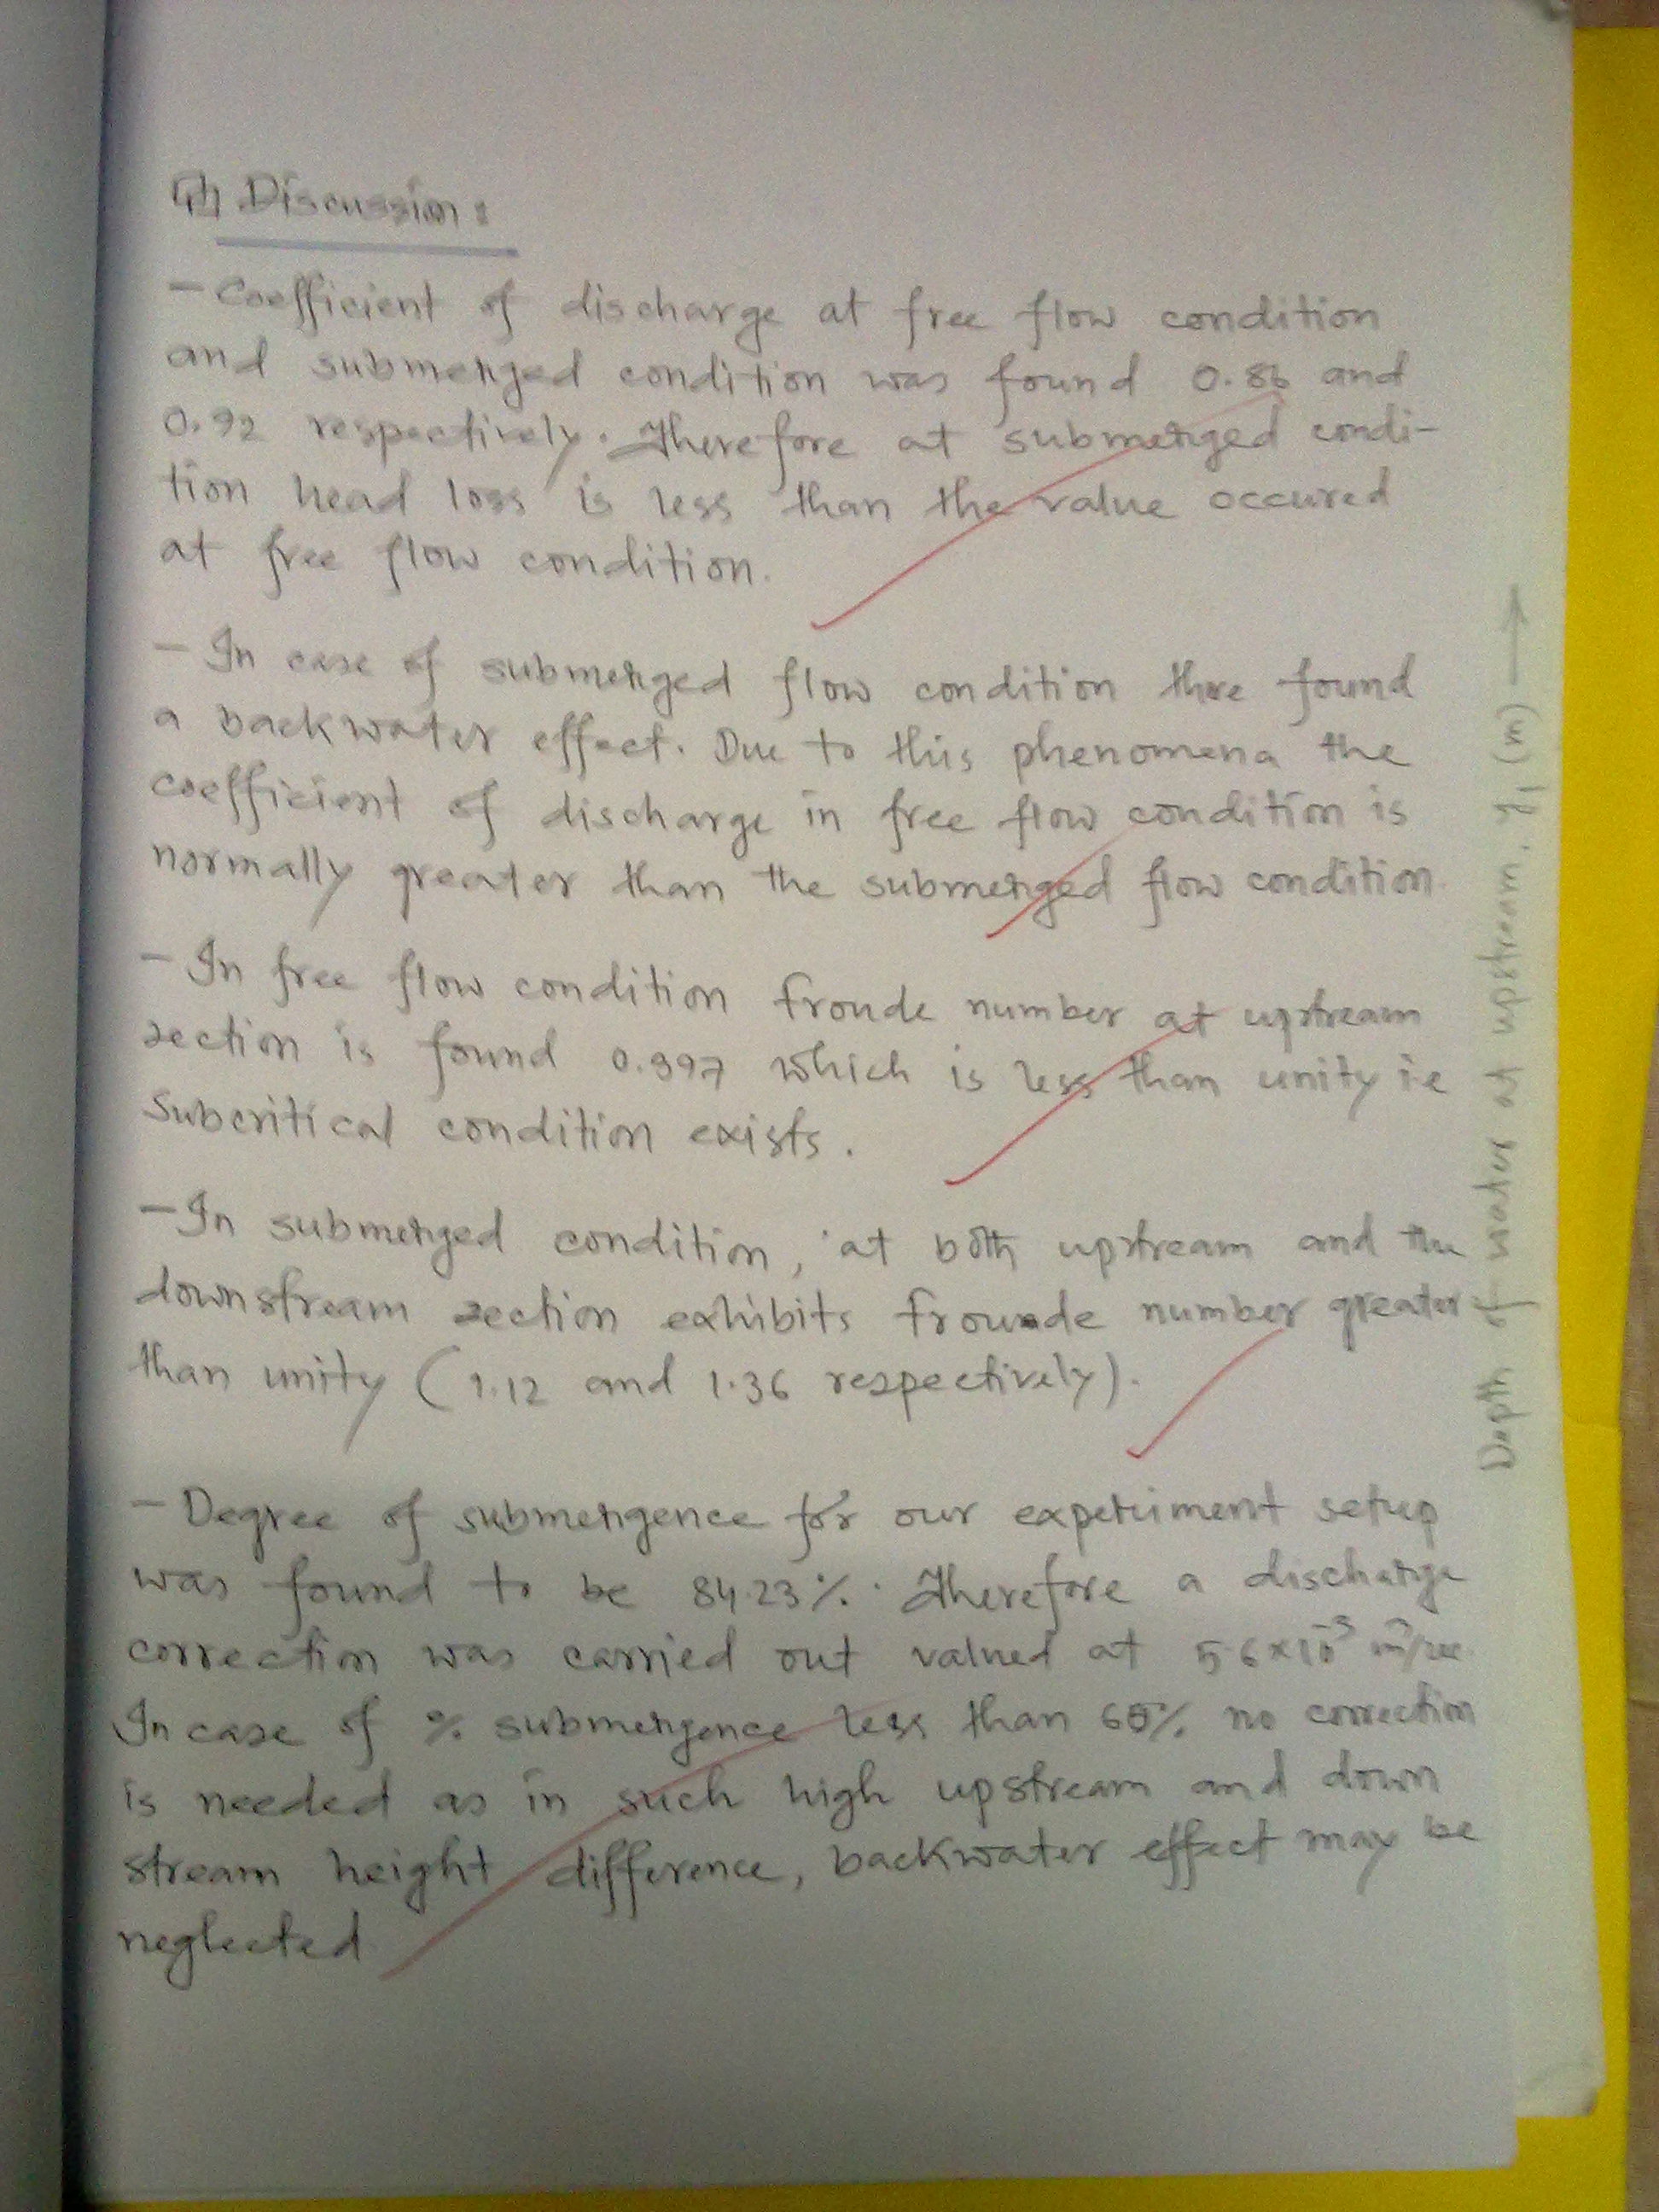 Discussion:
- Coefficient of discharge at free flow condition
and submerged condition was found 0.86 and
0.92 respectively. Therefore at submerged condi-
tion head loss is less than the value occured
at free flow condition.
- In case of submerged flow condition thre found
a backwater effect. Due to this phenomena the
coefficient of discharge in free flow condition is
normally greater than the submerged flow condition.
- In free flow condition Froude number at upstream
section is found 0.397 which is less than unity ie
Subcritical condition exists.
- In submerged condition, at both upstream and the
downstream section exhibits Frounde number greater
than unity (1.12 and 1.36 respectively).
- Degree of submergence for our experiment setup
was found to be 84.23%. Therefore a discharge
correction was carried out valued at 5.6×10⁻³ m³/sec.
In case of % submergence less than 65% no correction
is needed as in such high upstream and down
stream height difference, backwater effect may be
neglected
Depth of water at upstream, y₁ (m) →